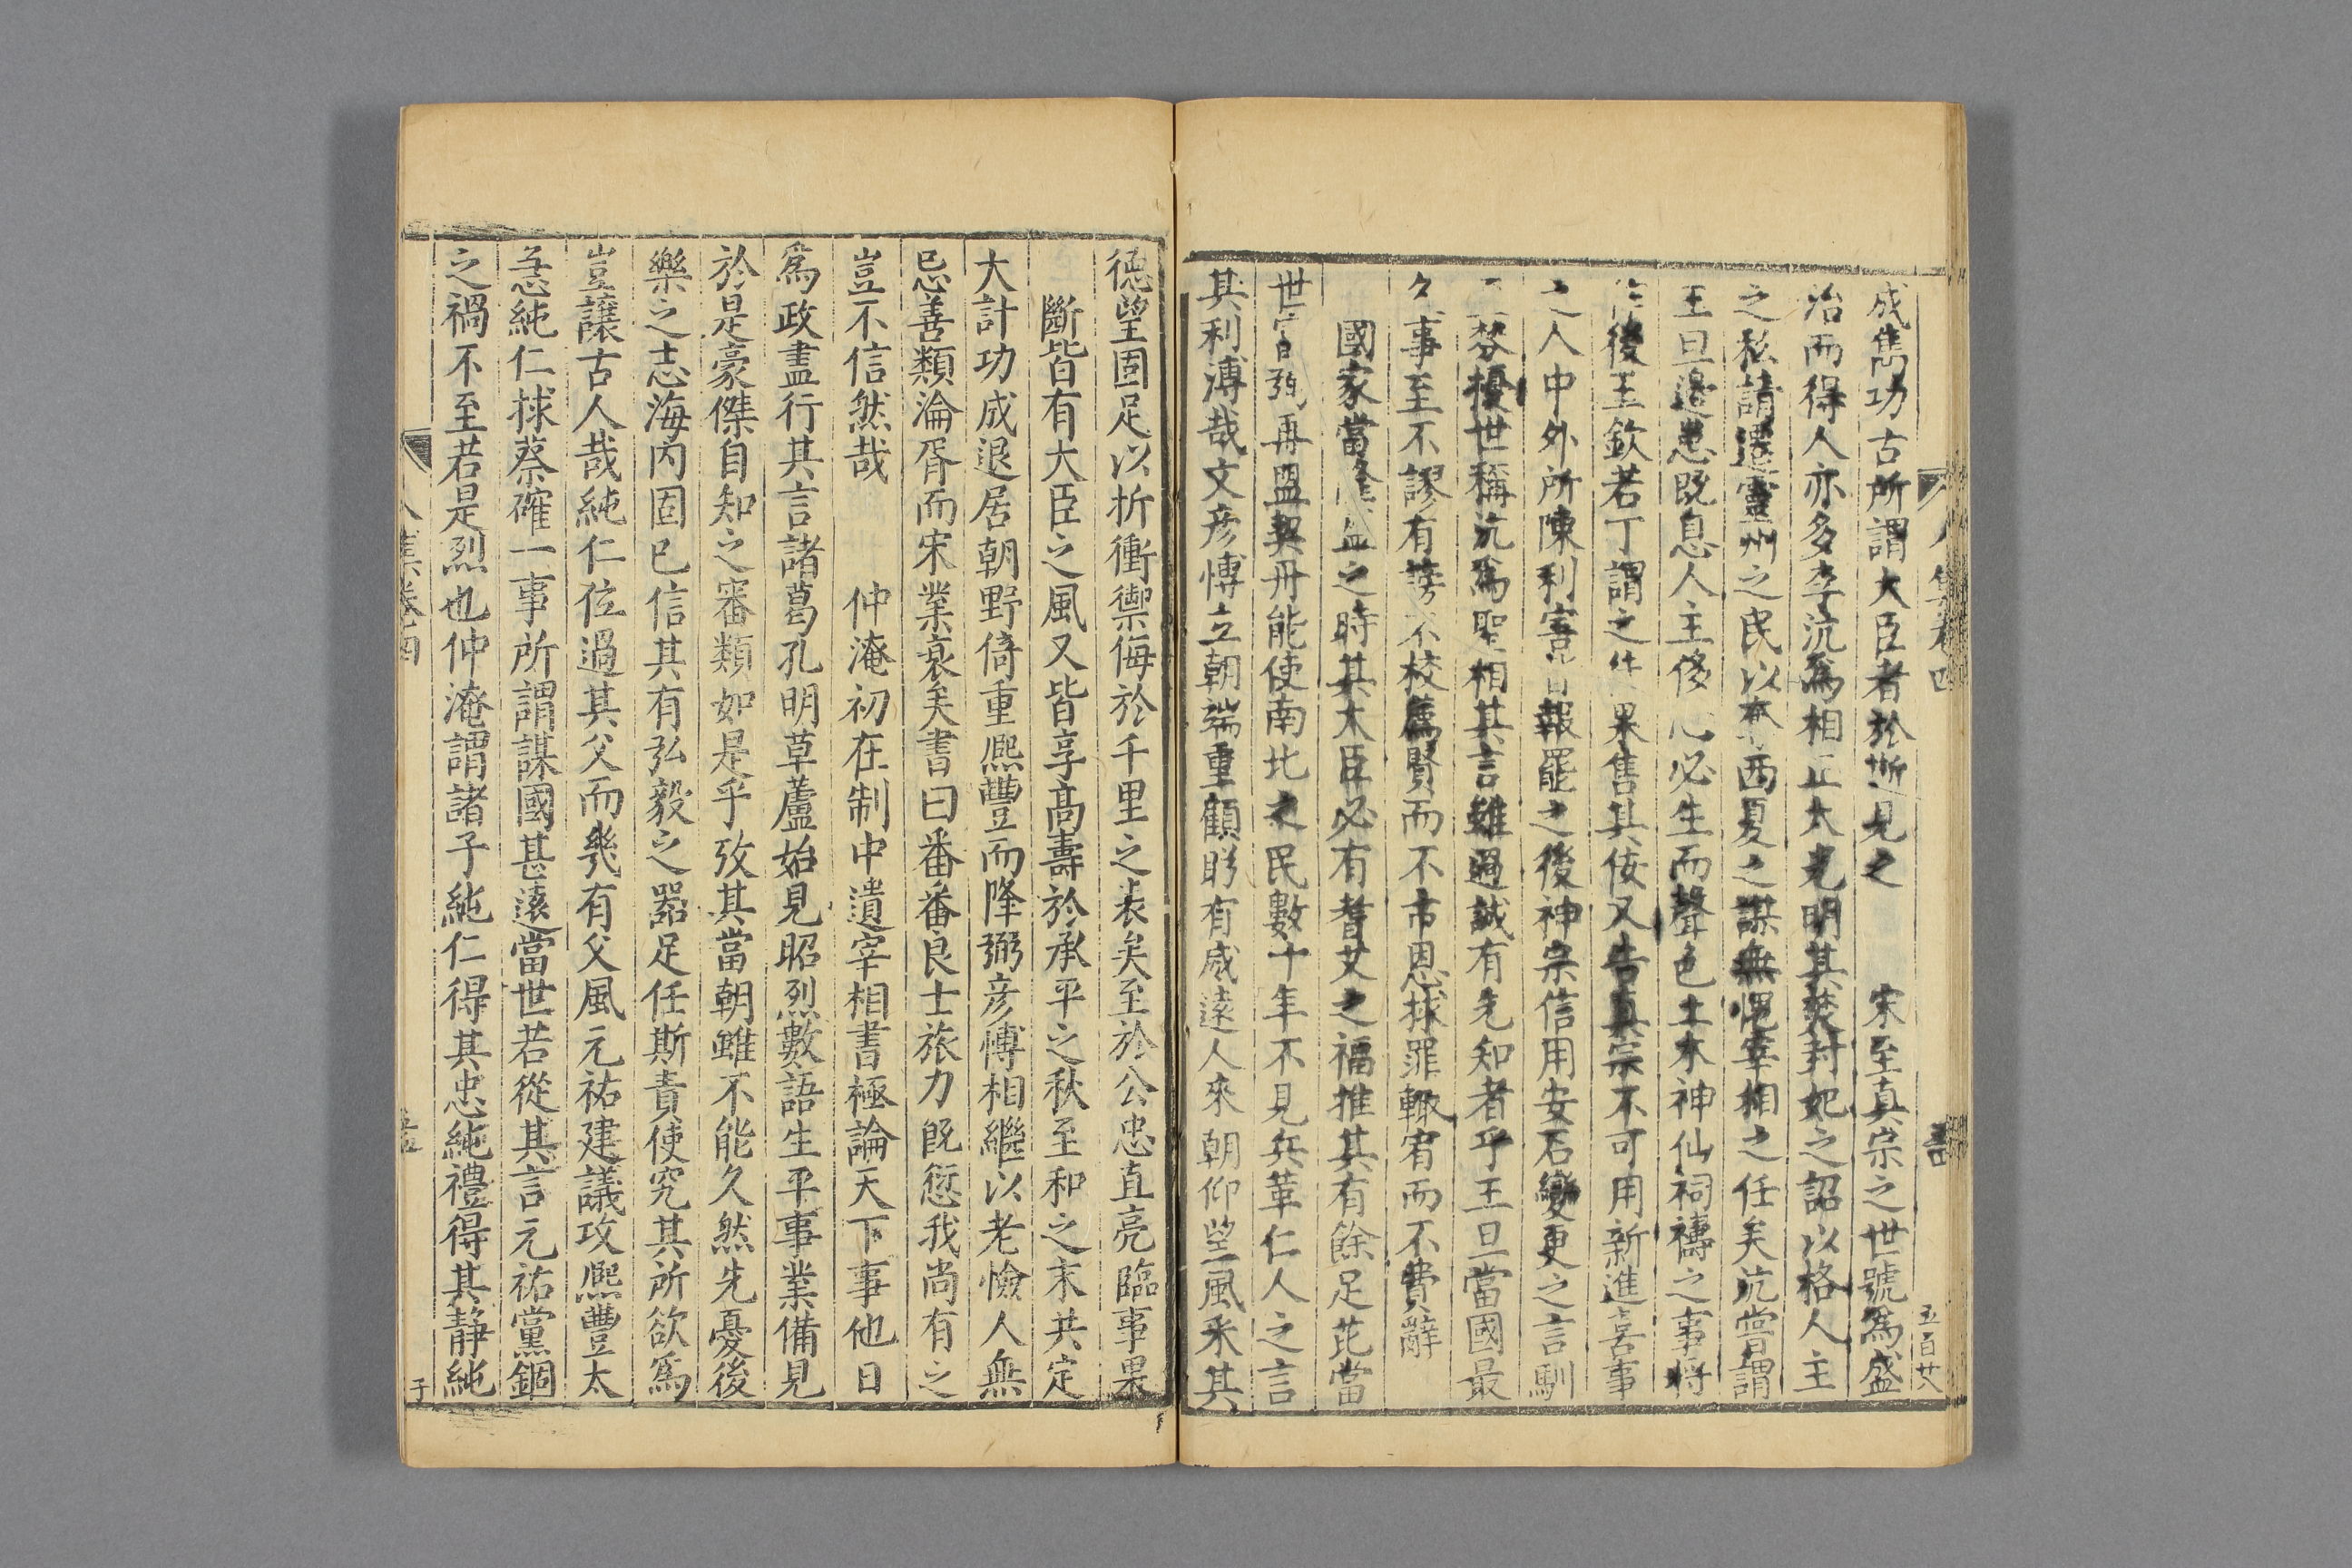 八集卷四
五百廿
成雋功古所謂大臣者於斯見之　宋至真宗之世號爲盛
治而得人亦多李沆爲相正大光明其焚封妃之詔以格人主
之私請遷靈州之民以奪西夏之謀無愧宰相之任矣沆嘗謂
王旦邊患既息人主侈心必生而聲色土木神仙祠禱之事將
作後王欽若丁謂之徒果售其佞又告真宗不可用新進喜事
之人中外所陳利害皆報罷之後神宗信用安石變更之言馴
至棼擾世稱沆爲聖相其言雖過誠有先知者乎王旦當國最
久事至不謬有謗不校薦賢而不市恩捄罪輒宥而不費辭
國家當隆盛之時其大臣必有耆艾之福推其有餘足芘當
世富弼再盟契丹能使南北之民數十年不見兵革仁人之言
其利溥哉文彦博立朝端重顧眄有威遠人來朝仰望風采其
德望固足以折衝禦侮於千里之表矣至於公忠直亮臨事果
斷皆有大臣之風又皆享高壽於承平之秋至和之末共定
大計功成退居朝野倚重熈豐而降弼彦博相繼以老憸人無
忌善類淪胥而宋業衰矣書曰番番良士旅力既愆我尚有之
豈不信然哉　仲淹初在制中遺宰相書極論天下事他日
爲政盡行其言諸葛孔明草蘆始見昭烈數語生平事業備見
於是豪傑自知之審類如是乎攷其當朝雖不能久然先憂後
樂之志海内固已信其有弘毅之器足任斯責使究其所欲爲
豈讓古人哉純仁位過其父而幾有父風元祐建議攻熈豐太
急純仁捄蔡確一事所謂謀國甚遠當世若從其言元祐黨錮
之禍不至若是烈也仲淹謂諸子純仁得其忠純禮得其静純
八集卷四